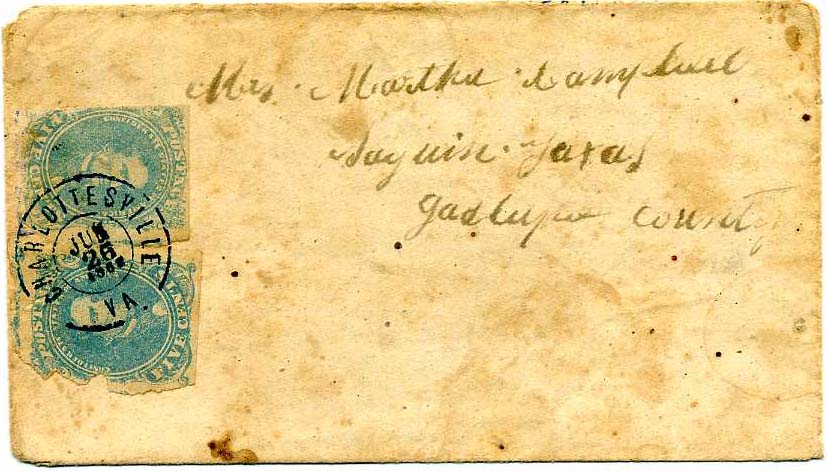 Mrs. Martha Campbell
Saguin. Taxas
Gadlupe county
CHARLOTTESVILLE
JUN
26
VA.
CONFEDERATE
POSTAGE